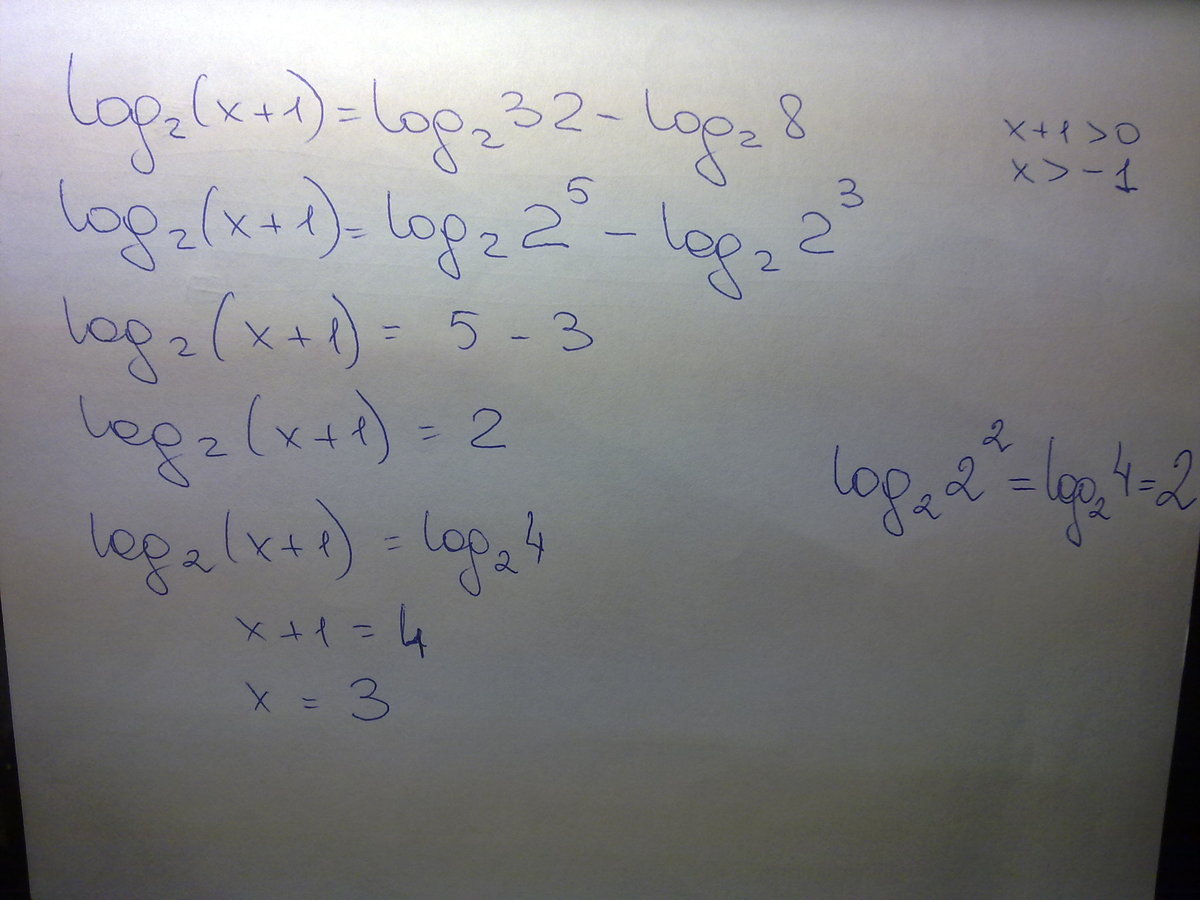 log₂(x+1)=log₂32-log₂8
x+1>0
x>-1
log₂(x+1)=log₂2⁵-log₂2³
log₂(x+1)=5-3
log₂(x+1)=2
log₂2²=log₂4=2
log₂(x+1)=log₂4
x+1=4
x=3